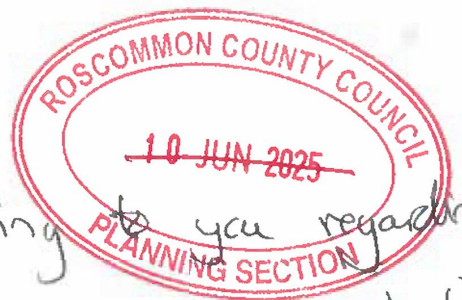 ROSCOMMON COUNTY COUNCIL
10 JUN 2025
PLANNING SECTION
to you regarding